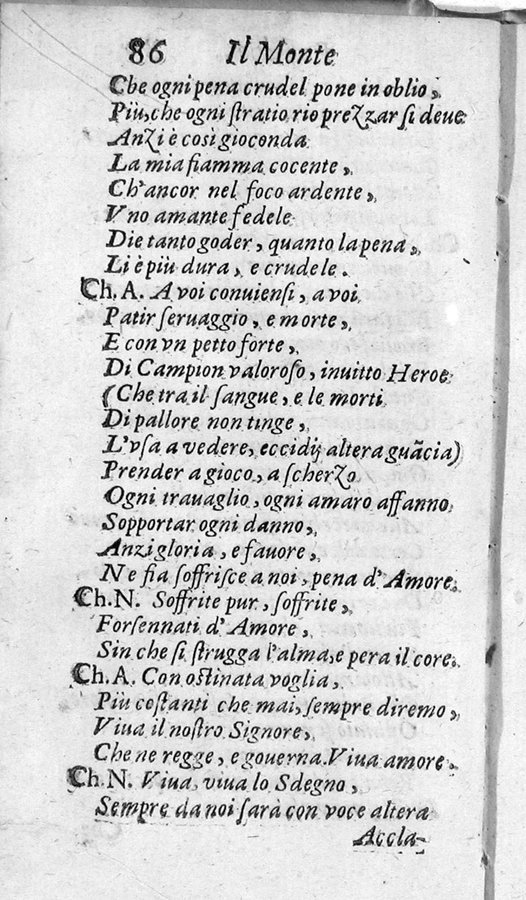 86 Il Monte
Che ogni pena crudel pone in oblio,
Più, che ogni ſtratio rio prezzar ſi deue
Anzi è così gioconda
La mia fiamma cocente,
Ch'ancor nel foco ardente,
Vno amante fedele
Die tanto goder, quanto la pena,
Li è più dura, e crudele.
Ch. A. A voi conuienſi, a voi
Patir ſeruaggio, e morte,
E con vn petto forte,
Di Campion valoroſo, inuitto Heroe
(Che tra il ſangue, e le morti
Di pallore non tinge,
L'vſa a vedere, eccidij altera guãcia)
Prender a gioco, a ſcherzo
Ogni trauaglio, ogni amaro affanno
Sopportar ogni danno,
Anzi gloria, e fauore,
Ne fia ſoffriſce a noi, pena d'Amore.
Ch. N. Soffrite pur, ſoffrite,
Forſennati d'Amore,
Sin che ſi ſtrugga l'alma, e pera il core.
Ch. A. Con oſtinata voglia,
Più coſtanti che mai, ſempre diremo,
Viua il noſtro Signore,
Che ne regge, e gouerna. Viua amore.
Ch. N. Viua, viua lo Sdegno,
Sempre da noi ſarà con voce altera
Accla-